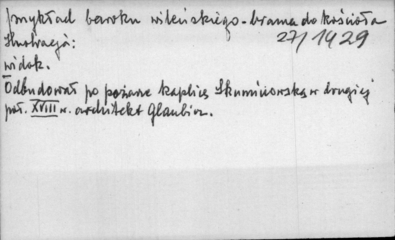 Przykład baroku wileńskiego - brama do kościoła
Ilustracja: 27/1929
widok.
Odbudował po pożarze kaplicę Skuminowską w drugiej
poł. XVIII w. architekt Glaubitz.